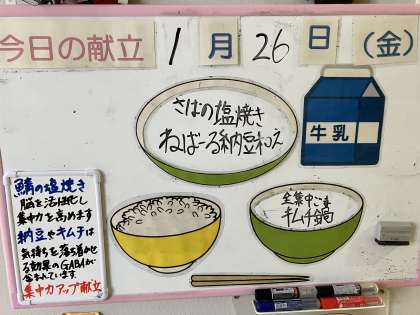 今日の献立 1月26日(金)
さばの塩焼き
ねばーる納豆和え
牛乳
全集中ごま
キムチ鍋
鯖の塩焼き
脳を活性化し
集中力を高めます
納豆やキムチは
気持ちを落ち着かせ
る効果のGABAが
含まれています
集中力アップ献立